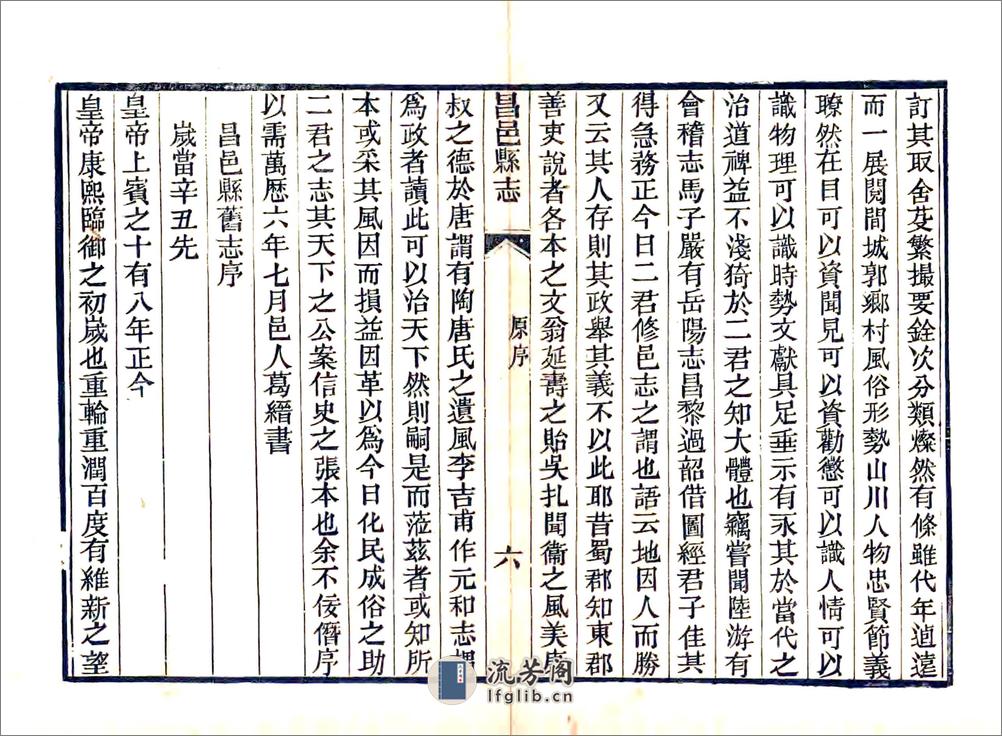 訂其取舍芟繁撮要銓次分類燦然有條雖代年逌遠
而一展閱間城郭鄉村風俗形勢山川人物忠賢節義
瞭然在目可以資聞見可以資勸懲可以識人情可以
識物理可以識時勢文獻具足垂示有永其於當代之
治道裨益不淺猗於二君之知大體也竊嘗聞陸游有
會稽志馬子嚴有岳陽志昌黎過韶借圖經君子佳其
得急務正今日二君修邑志之謂也語云地因人而勝
又云其人存則其政舉其義不以此耶昔蜀郡知東郡
善吏說者各本之文翁延壽之貽吳扎聞衞之風美康
昌邑縣志
原序
六
叔之德於唐謂有陶唐氏之遺風李吉甫作元和志
為政者讀此可以治天下然則嗣是而蒞茲者或知所
本或采其風因而損益因革以為今日化民成俗之助
二君之志其天下之公案信史之張本也余不佞僭序
以需萬歷六年七月邑人葛縉書
昌邑縣舊志序
歲當辛丑先
皇帝上賓之十有八年正今
皇帝康熙臨御之初歲也重輪重潤百度有維新之望
流芳阁
lfglib.cn